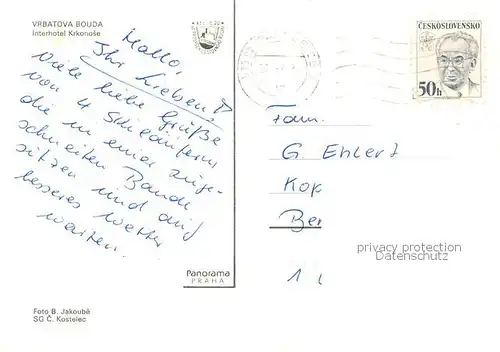 VRBATOVA BOUDA
Interhotel Krkonoše
Hallo,
Ihr Lieben!
Viele liebe Grüße
von 4 Skiläufern
die in einer zuge-
schneiten Baude
sitzen und auf
besseres Wetter
warten.
Foto B. Jakoubě
SG Č. Kostelec
Panorama
PRAHA
ČESKOSLOVENSKO
50h
Fam.
G. Ehlert
Kop
Ber
1
privacy protection
Datenschutz